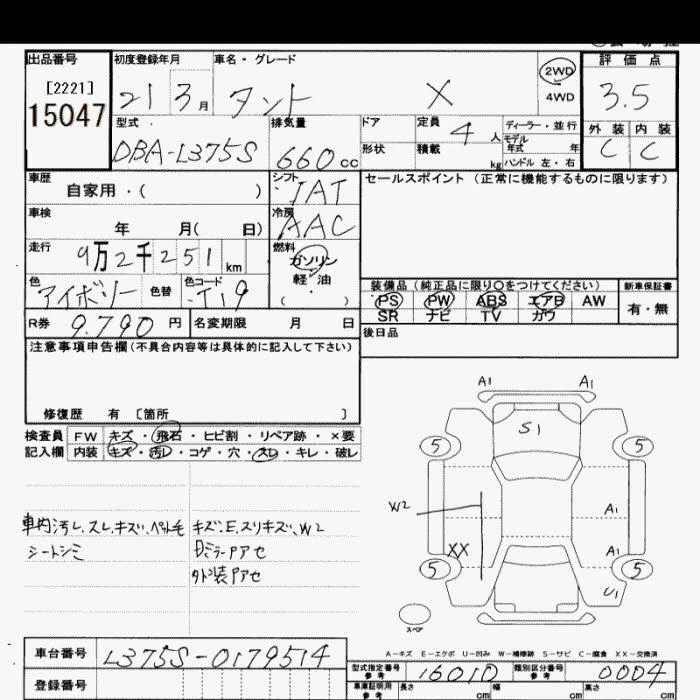 出品番号 初度登録年月 車名・グレード 2WD 評価点
[2221] 21 3月 タント X 4WD 3.5
15047
型式 排気量 ドア 定員 4人 ディーラー・並行 外装 内装
DBA-L375S 660cc 形状 積載 kg モデル年式 年 C C
ハンドル 左・右
車歴 シフト セールスポイント(正常に機能するものに限ります)
自家用・( ) IAT
車検 冷房
年 月( 日) AAC
走行 燃料
9万2千251km ガソリン
色 色替 色コード 軽・油 装備品(純正品に限り〇をつけてください) 新車保証書
アイボリー T19 ( ) PS PW ABS エアB AW 有・無
SR ナビ TV カワ
R券 9.790円 名変期限 月 日 後日品
注意事項申告欄(不具合内容等は具体的に記入して下さい)
修復歴 有 [箇所 ]
検査員 FW キズ・飛石・ヒビ割・リペア跡・×要
記入欄 内装 キズ・汚レ・コゲ・穴・スレ・キレ・破レ
車内汚レ、スレ、キズ、ペット毛 キズ、E、スリキズ、W2
シートシミ Dミラーアセ
外装アセ
A1 A1
S1
5 5
W2 A1
XX A1
5 5
U1
スペア
A-キズ E-エクボ U-凹み W-補修跡 S-サビ C-腐食 XX-交換済
車台番号 L375S-0179514 型式指定番号 16010 類別区分番号 0004
参考 参考
登録番号 車車証明用 長さ cm 幅 cm 高さ cm
参考